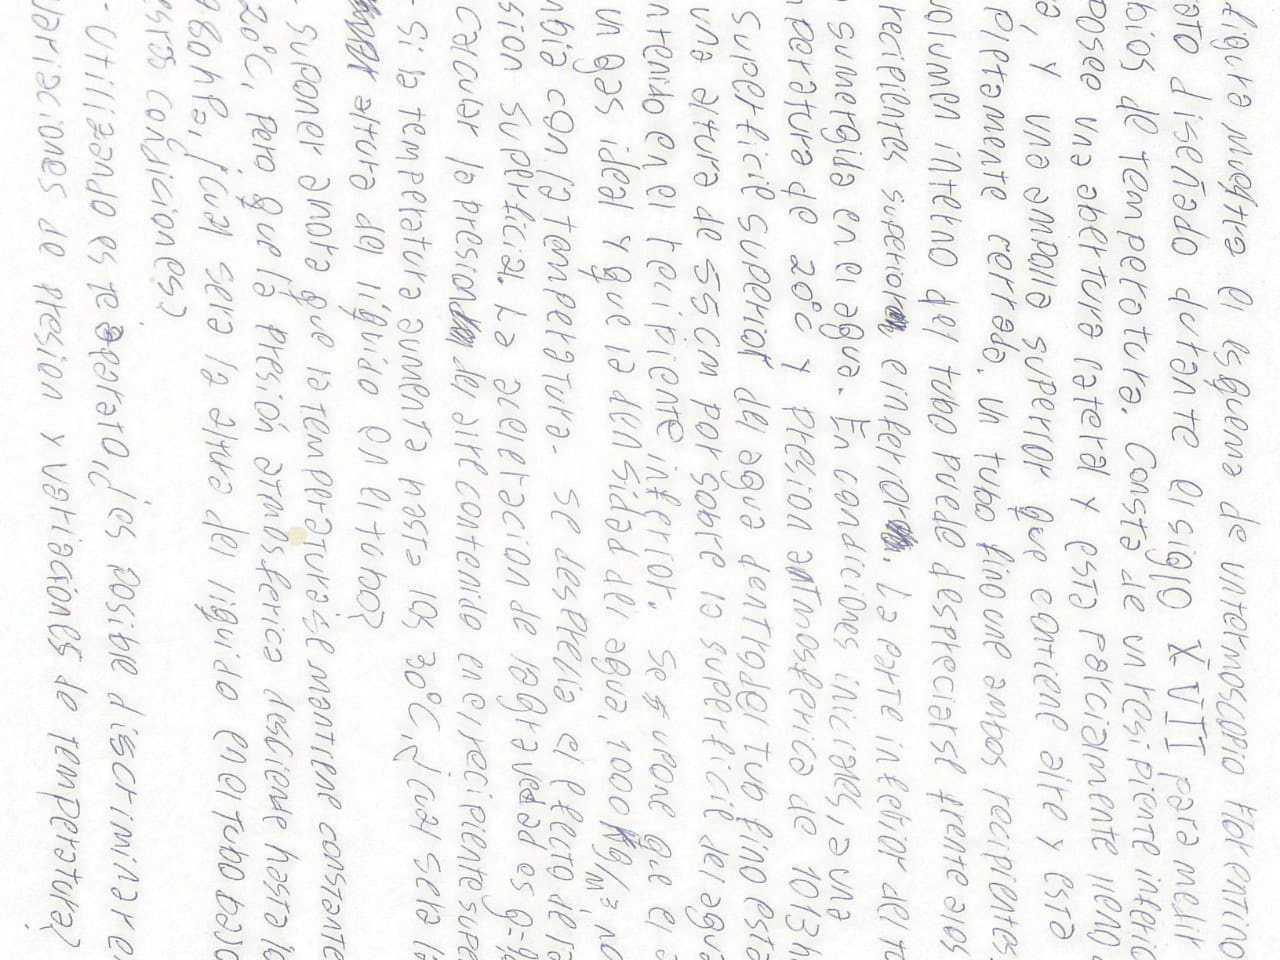 figura muestra el esquema de un termoscopio florentino
rato diseñado durante el siglo XVII para medir
bios de temperotura. Consta de un resipiente inferio
posee una abertura lateral y esta parcialmente lleno
a, y una ampolla superior que contiene aire y esta
pletamente cerrada. Un tubo fino une ambos recipientes.
volumen interno del tubo puede despreciarse frente a los
recipientes superior e inferior. La parte inferior del tu
sumergida en el agua. En condiciones iniciales, a una
mperatura de 20°C y presion atmosferica de 1013h
superficie superior del agua dentro del tubo fino está
una altura de 55cm por sobre la superficie del agua
ntenido en el recipiente inferior. Se supone que el a
un gas ideal y que la densidad del agua, 1000 Kg/m³, no
mbia con la temperatura. Se desprecia el efecto de te
sion superficial. La aceleracion de la gravedad es g=9
Calcular la presion del aire contenido en el recipiente supe
Si la temperatura aumenta hasta los 30°C, ¿cual sera la
altura del liquido en el tubo?
Suponer ahora que la temperatura se mantiene constante
20°C, pero que la presión atmosferica desciende hasta lo
780hPa, ¿cual sera la altura del liquido en el tubo bajo
estas condiciones?
- Utilizando este aparato, ¿es posible discriminar e
variaciones de presion y variaciones de temperatura?